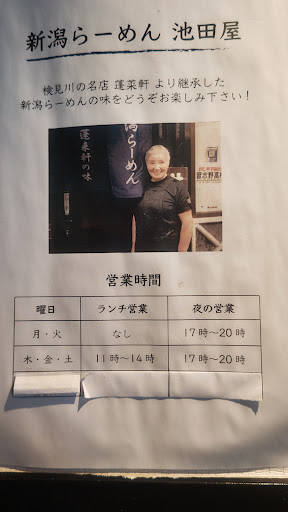 新潟らーめん 池田屋
検見川の名店 蓬菜軒 より継承した
新潟らーめんの味をどうぞお楽しみ下さい！
潟らーめん
蓬来軒の味
営業時間
曜日 ランチ営業 夜の営業
月・火 なし 17時～20時
木・金・土 11時～14時 17時～20時